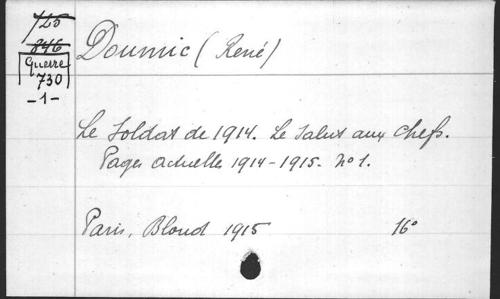 725
846
Guerre
730
-1-
Doumic (René)
Le Soldat de 1914. Le Salut aux Chefs.
Pages actuelles 1914-1915. No 1.
Paris, Bloud 1915 16°